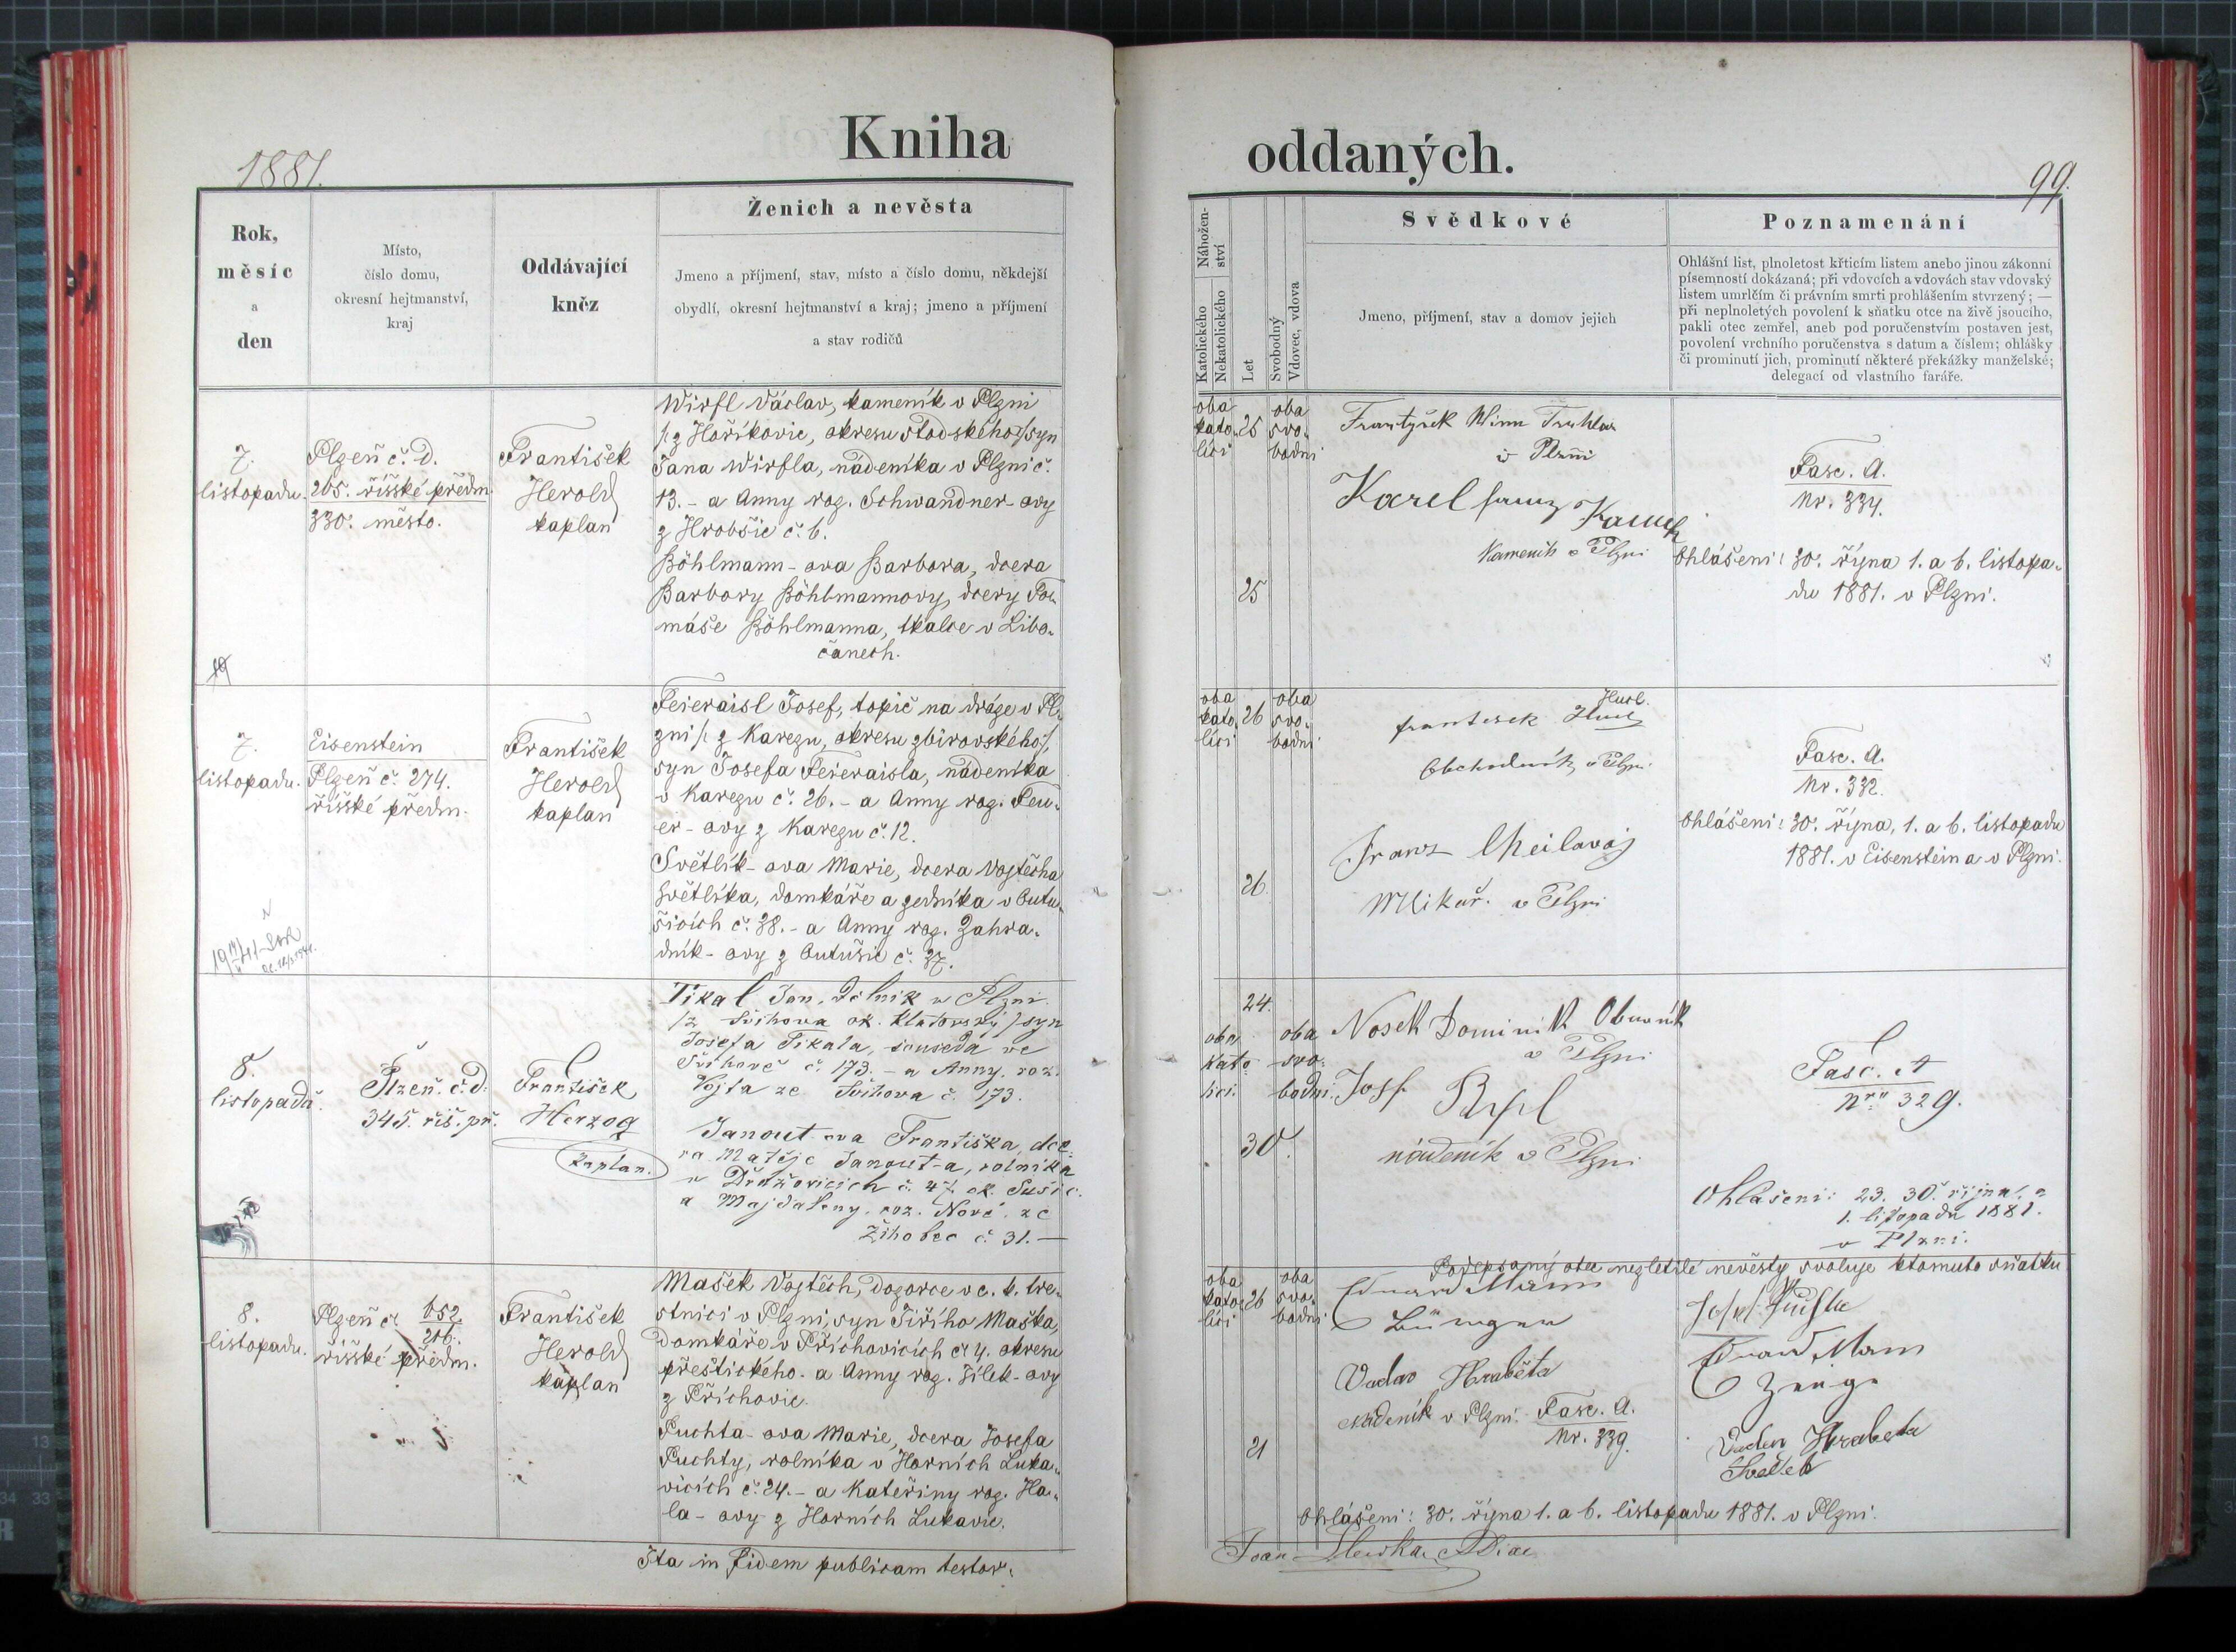 1881.
Kniha
oddaných.
99.
Rok,
měsíc
a
den
Místo,
číslo domu,
okresní hejtmanství,
kraj
Oddávající
kněz
Ženich a nevěsta
Jmeno a příjmení, stav, místo a číslo domu, někdejší
obydlí, okresní hejtmanství a kraj; jmeno a příjmení
a stav rodičů
Nábožen-
ství
Katolického
Nekatolického
Let
Svobodný
Vdovec, vdova
Svědkové
Jmeno, příjmení, stav a domov jejich
Poznamenání
Ohlášní list, plnoletost křticím listem anebo jinou zákonní
písemností dokázaná; při vdovcích a vdovách stav vdovský
listem umrlčím či právním smrti prohlášením stvrzený; —
při neplnoletých povolení k sňatku otce na živě jsoucího,
pakli otec zemřel, aneb pod poručenstvím postaven jest,
povolení vrchního poručenstva s datum a číslem; ohlášky
či prominutí jich, prominutí některé překážky manželské;
delegací od vlastního faráře.
7.
listopadu.
Plzeň č. d.
205. říšské předm.
330. město.
František
Herold
kaplan
Wirfl Václav, kameník v Plzni
/: z Hoříkovic, okresu stodského :/ syn
Jana Wirfla, nádeníka v Plzni č.
13. - a Anny roz. Schwandner-ovy
z Hrobšic č. 6.
Böhlmann-ova Barbora, dcera
Barbory Böhlmannovy, dcery To-
máše Böhlmanna, tkalce v Libo-
čanech.
oba
kato-
líci
25
25
oba
svo-
bodni
František Winn Truhlar
v Plzni
Karel
Kameník v Plzni
Fasc. A.
Nr. 334.
Ohlášeni: 30. října 1. a 6. listopa-
du 1881. v Plzni.
7.
listopadu.
Eisenstein
Plzeň č. 274.
říšské předm.
František
Herold
kaplan
Feieraisl Josef, topič na dráze v Pl-
zni /: z Karezu, okresu zbirovského :/,
syn Josefa Feieraisla, nádeníka
v Karezu č. 26. - a Anny roz. Feu-
er-ovy z Karezu č. 12.
Světlík-ova Marie, dcera Vojtěcha
Světlíka, domkáře a zedníka v Outu-
šicích č. 38. - a Anny roz. Zahra-
dník-ovy z Outušic č. 37.
oba
kato-
líci
26
26.
oba
svo-
bodni
frantisek
Obchodník v Plzni
Franz
Mlikař. v Plzni
Fasc. A.
Nr. 332.
Ohlášeni: 30. října, 1. a 6. listopadu
1881. v Eisenstein a v Plzni.
8.
listopadu.
Plzeň. č. d.
345. říš. př.
František
Herzog
kaplan.
Tikal Jan, Dělník v Plzni
/z Švihova ok. Klatovský/ syn
Josefa Tikala, souseda ve
Švihově č. 173. - a Anny, roz.
Vojta ze Švihova č. 173.
Janout-ova Františka, dce-
ra Matěje Janout-a, rolníka
v Dražovicích č. 47. ok. Sušic.
a Majdaleny, roz. Nové. ze
Žihobec č. 31. —
24.
30.
oba
kato-
lici.
oba
svo-
bodni.
Nosek Dominik Obuvník
v Plzni
Josf
nádeník v Plzni
Fasc. A
Nro 329.
Ohlašeni: 23. 30. října. a
1. listopadu 1881.
v Plzni.
8.
listopadu.
Plzeň č. 652.
206.
říšské předm.
František
Herold
kaplan
Mašek Vojtěch, dozorce v c. k. tre-
stnici v Plzni, syn Jiřího Maška,
domkáře v Příchovicích č. 4. okresu
přeštického - a Anny roz. Jílek-ovy
z Příchovic.
Puchta-ova Marie, dcera Josefa
Puchty, rolníka v Horních Luka-
vicích č. 24. - a Kateřiny roz. Ha-
la-ovy z Horních Lukavic.
oba
kato-
líci
26
21
oba
svo-
bodni
Podepsaný otec nezletilé nevěsty svoluje k tomuto sňatku
Josef Puchta
Eduard Mann
Bürger
Eduard Mann
Zeuge
Vaclav Hraběta
Nádeník v Plzni.
Vaclav Hrabeta
Svědek
Fasc. A.
Nr. 339.
Ohlášeni: 30. října 1. a 6. listopadu 1881. v Plzni.
Ita in fidem publicam testor.